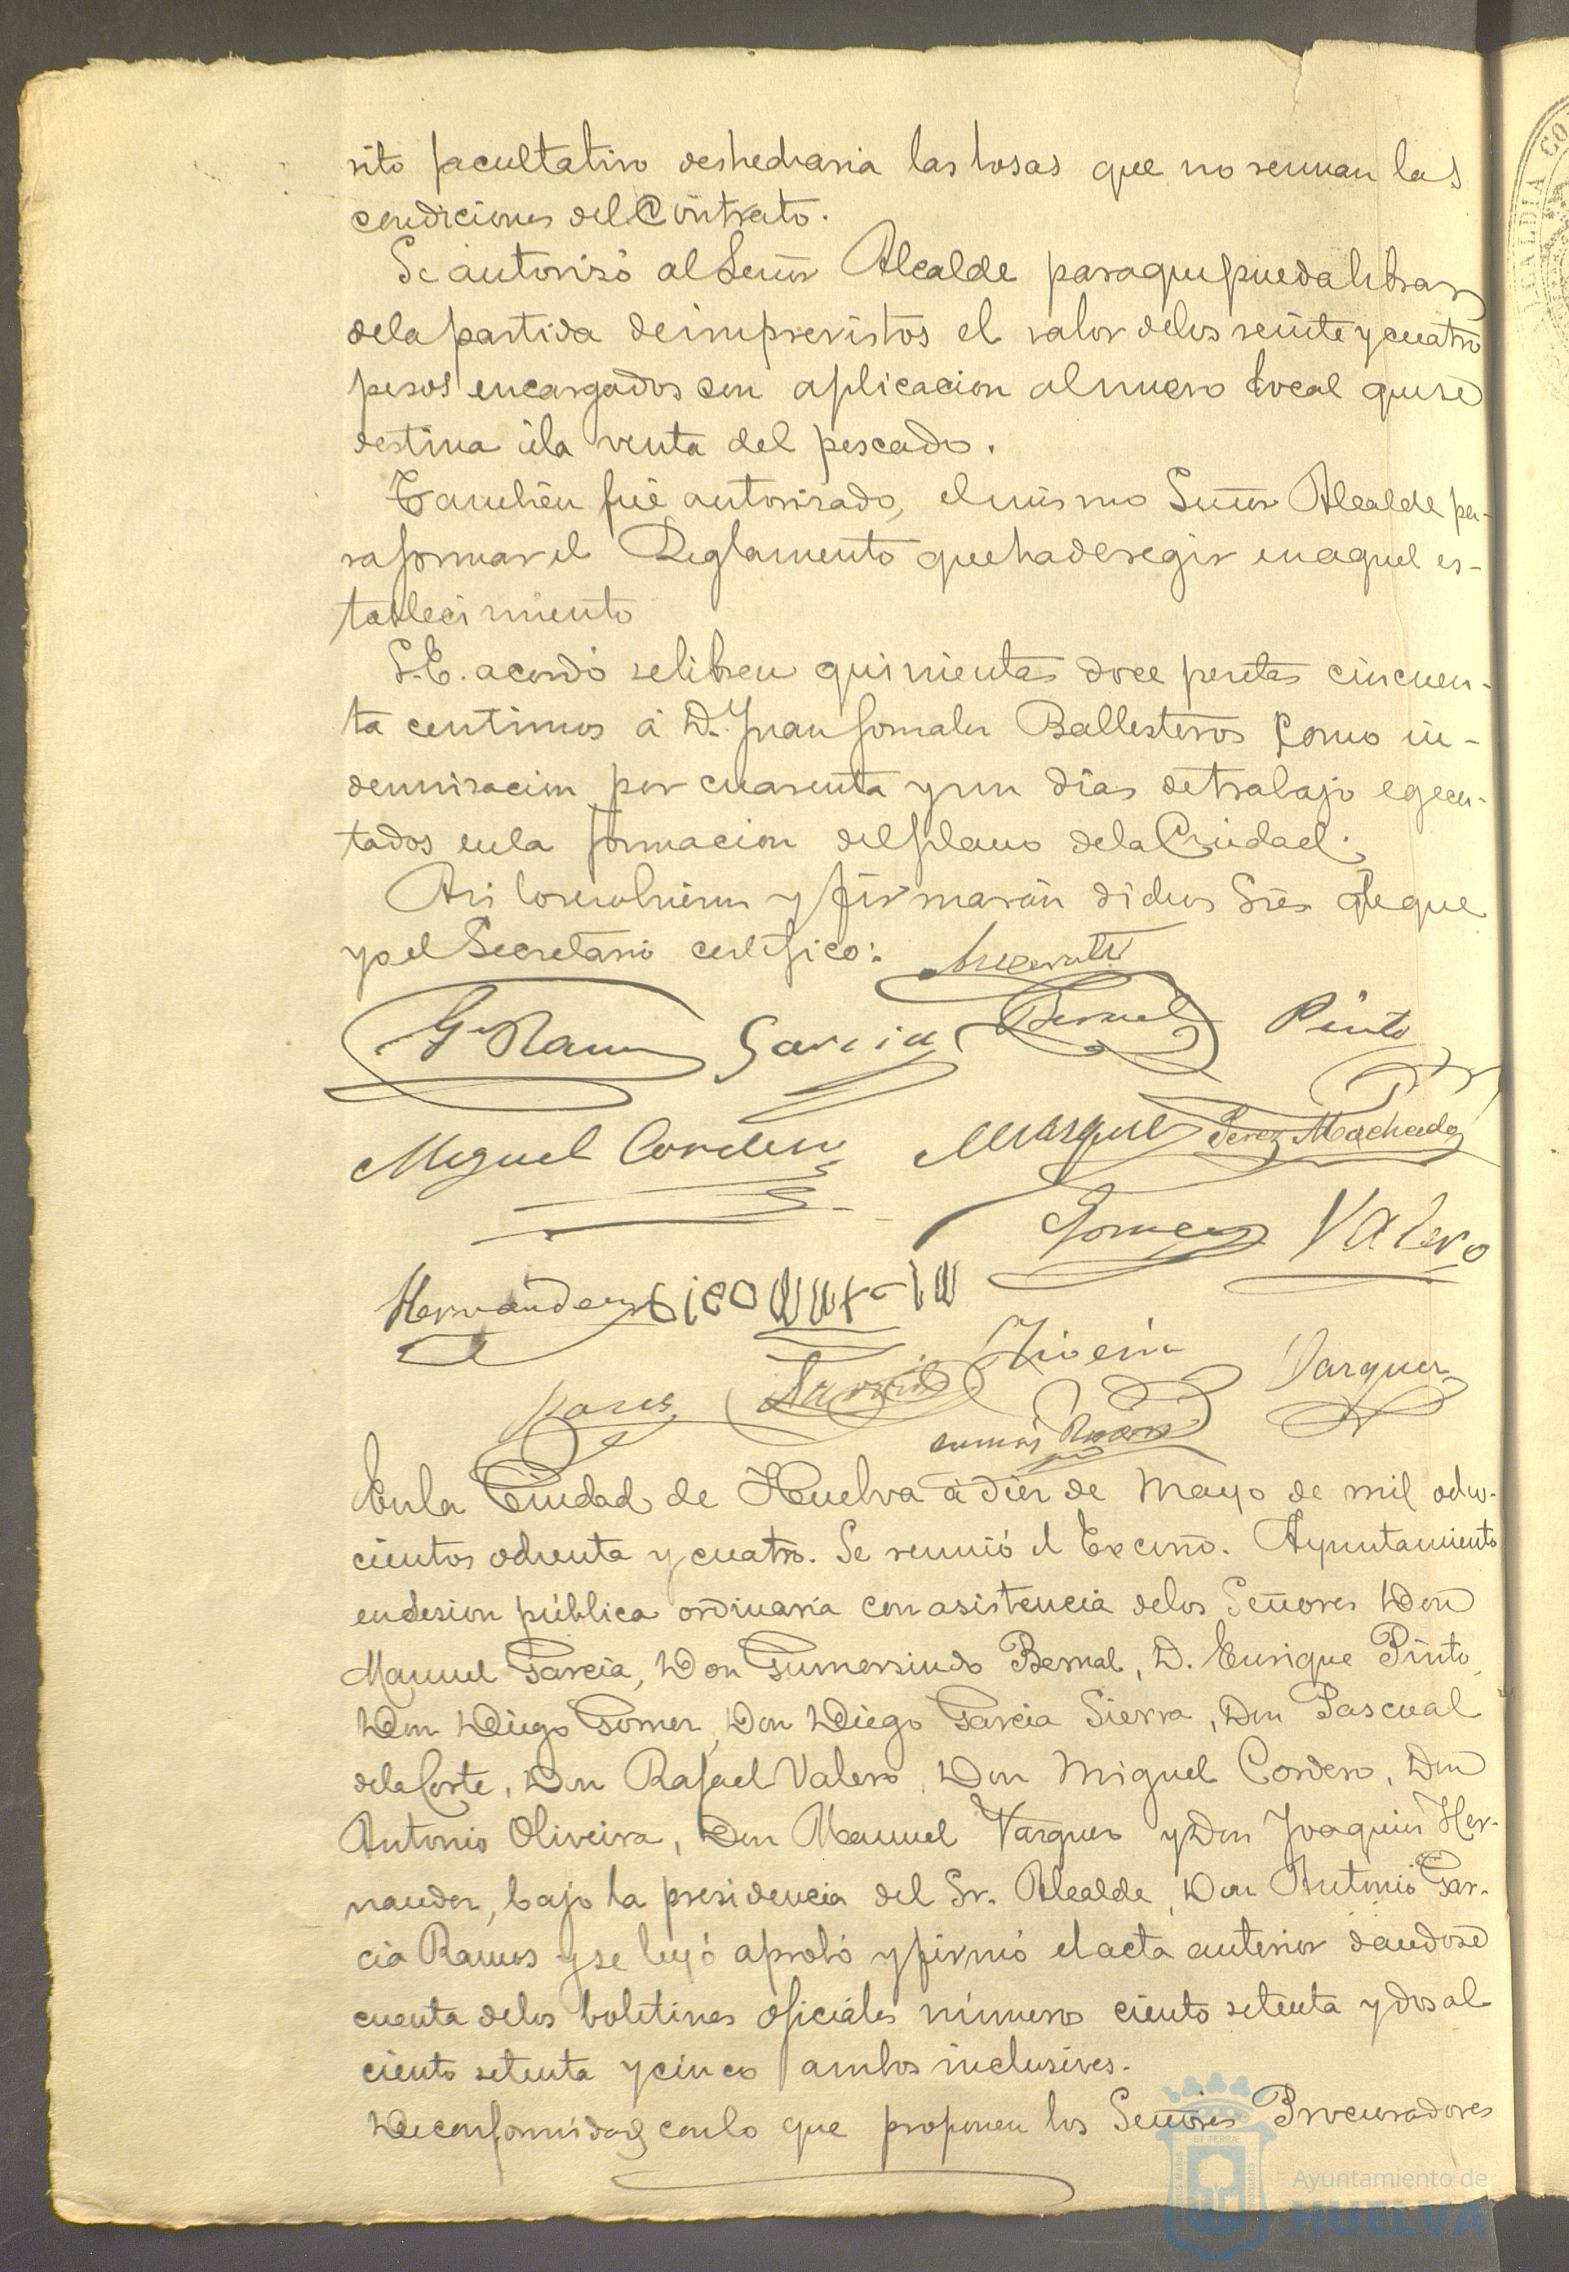 sito facultativo deshecharia las losas que no reunan las
condiciones del Contrato.
Se autorisó al Señor Alcalde para que pueda librar
de la partida de imprevistos el valor de los veinte y cuatro
pesos encargados con aplicacion al nuevo local que se
destina á la venta del pescado.
Tambien fué autorisado, el mismo Señor Alcalde pa-
ra formar el Reglamento que ha de regir en aquel es-
tablecimiento
S.E. acordó se libren quinientas doce pesetas cincuen-
ta centimos á D. Juan Gonzalez Ballesteros como in-
demnisacion por cuarenta y un dias de trabajo egecu-
tados en la formacion del plano de la Ciudad.
Asi lo resolvieron y firmarán dichos Sres de que
yo el Secretario certifico:
Ga Ramos Garcia Bernal Pinto
Miguel Cordero Marquez Perez Machado
Gomez Valero
Hernandez
Garcia Oliveira Vazquez
En la Ciudad de Huelva á diez de Mayo de mil ocho-
cientos ochenta y cuatro. Se reunió el Excmo. Ayuntamiento
en sesion pública ordinaria con asistencia de los Señores Don
Manuel Garcia, Don Gumersindo Bernal, D. Enrique Pinto,
Don Diego Gomez, Don Diego Garcia Sierra, Don Pascual
de la Corte, Don Rafael Valero, Don Miguel Cordero, Don
Antonio Oliveira, Don Manuel Vazquez y Don Joaquin Her-
nandez, bajo la presidencia del Sr. Alcalde, Don Antonio Gar-
cia Ramos y se leyó aprobó y firmó el acta anterior dandose
cuenta de los boletines oficiales números ciento setenta y dos al
ciento setenta y cinco ambos inclusives.
De conformidad con lo que proponen los Señores Procuradores
Ayuntamiento de
HUELVA